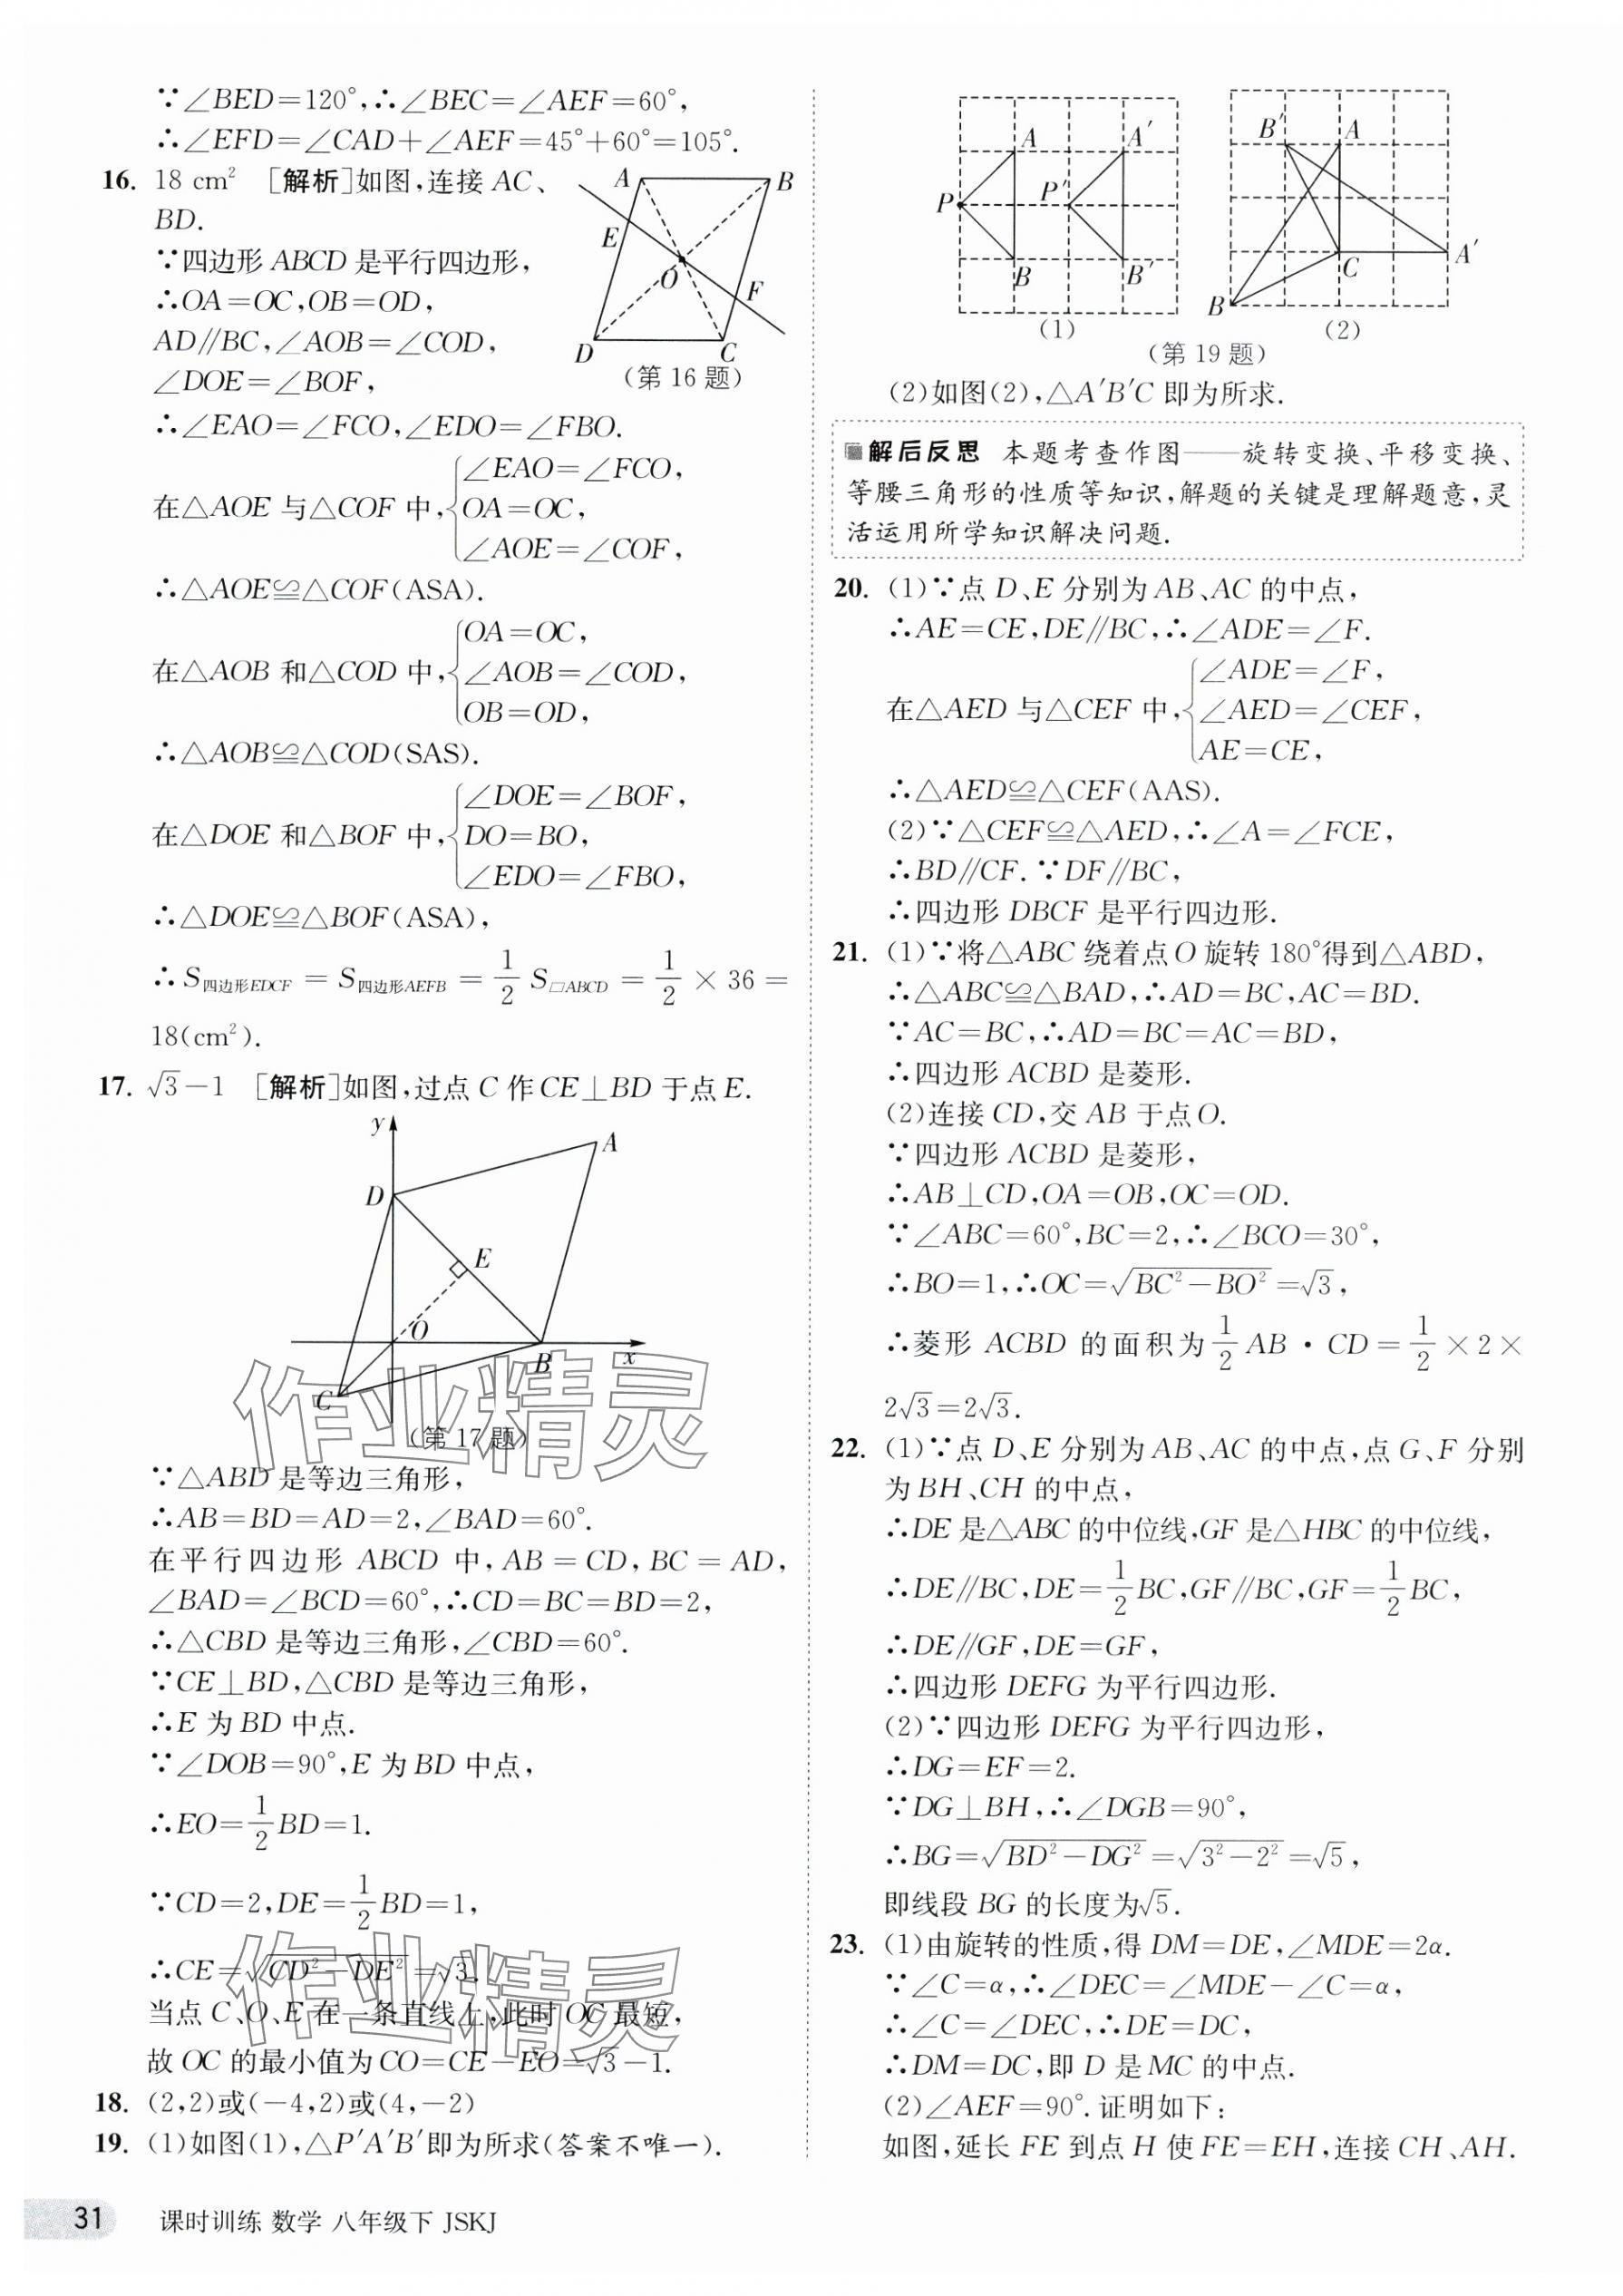 ∵∠BED=120°,∴∠BEC=∠AEF=60°,
∴∠EFD=∠CAD+∠AEF=45°+60°=105°.
16. 18 cm² [解析]如图,连接 AC、
BD.
∵四边形 ABCD 是平行四边形,
∴OA=OC,OB=OD,
AD∥BC,∠AOB=∠COD,
∠DOE=∠BOF,
A
B
E
O
F
D
C
(第 16 题)
∴∠EAO=∠FCO,∠EDO=∠FBO.
∠EAO=∠FCO,
在△AOE 与△COF 中,{OA=OC,
∠AOE=∠COF,
∴△AOE≌△COF(ASA).
OA=OC,
在△AOB 和△COD 中,{∠AOB=∠COD,
OB=OD,
∴△AOB≌△COD(SAS).
∠DOE=∠BOF,
在△DOE 和△BOF 中,{DO=BO,
∠EDO=∠FBO,
∴△DOE≌△BOF(ASA),
∴S四边形EDCF = S四边形AEFB = 1/2 S▱ABCD = 1/2 × 36 =
18(cm²).
17. √3-1 [解析]如图,过点 C 作 CE⊥BD 于点 E.
y
A
D
E
O
B
x
C
(第 17 题)
∵△ABD 是等边三角形,
∴AB=BD=AD=2,∠BAD=60°.
在平行四边形 ABCD 中, AB = CD, BC = AD,
∠BAD=∠BCD=60°,∴CD=BC=BD=2,
∴△CBD 是等边三角形,∠CBD=60°.
∵CE⊥BD,△CBD 是等边三角形,
∴E 为 BD 中点.
∵∠DOB=90°,E 为 BD 中点,
∴EO=1/2 BD=1.
∵CD=2,DE=1/2 BD=1,
∴CE=√(CD²-DE²)=√3,
当点 C、O、E 在一条直线上,此时 OC 最短,
故 OC 的最小值为 CO=CE-EO=√3-1.
18. (2,2)或(-4,2)或(4,-2)
19. (1)如图(1),△P′A′B′即为所求(答案不唯一).
A
A′
P
P′
B
B′
(1)
B′
A
C
A′
B
(2)
(第 19 题)
(2)如图(2),△A′B′C 即为所求.
解后反思 本题考查作图——旋转变换、平移变换、
等腰三角形的性质等知识,解题的关键是理解题意,灵
活运用所学知识解决问题.
20. (1)∵点 D、E 分别为 AB、AC 的中点,
∴AE=CE,DE∥BC,∴∠ADE=∠F.
∠ADE=∠F,
在△AED 与△CEF 中,{∠AED=∠CEF,
AE=CE,
∴△AED≌△CEF(AAS).
(2)∵△CEF≌△AED,∴∠A=∠FCE,
∴BD∥CF.∵DF∥BC,
∴四边形 DBCF 是平行四边形.
21. (1)∵将△ABC 绕着点 O 旋转 180°得到△ABD,
∴△ABC≌△BAD,∴AD=BC,AC=BD.
∵AC=BC,∴AD=BC=AC=BD,
∴四边形 ACBD 是菱形.
(2)连接 CD,交 AB 于点 O.
∵四边形 ACBD 是菱形,
∴AB⊥CD,OA=OB,OC=OD.
∵∠ABC=60°,BC=2,∴∠BCO=30°,
∴BO=1,∴OC=√(BC²-BO²)=√3,
∴菱形 ACBD 的面积为 1/2 AB·CD=1/2×2×
2√3=2√3.
22. (1)∵点 D、E 分别为 AB、AC 的中点,点 G、F 分别
为 BH、CH 的中点,
∴DE 是△ABC 的中位线,GF 是△HBC 的中位线,
∴DE∥BC,DE=1/2 BC,GF∥BC,GF=1/2 BC,
∴DE∥GF,DE=GF,
∴四边形 DEFG 为平行四边形.
(2)∵四边形 DEFG 为平行四边形,
∴DG=EF=2.
∵DG⊥BH,∴∠DGB=90°,
∴BG=√(BD²-DG²)=√(3²-2²)=√5,
即线段 BG 的长度为√5.
23. (1)由旋转的性质,得 DM=DE,∠MDE=2α.
∵∠C=α,∴∠DEC=∠MDE-∠C=α,
∴∠C=∠DEC,∴DE=DC,
∴DM=DC,即 D 是 MC 的中点.
(2)∠AEF=90°.证明如下:
如图,延长 FE 到点 H 使 FE=EH,连接 CH、AH.
31 课时训练 数学 八年级下 JSKJ
作业精灵
作业精灵